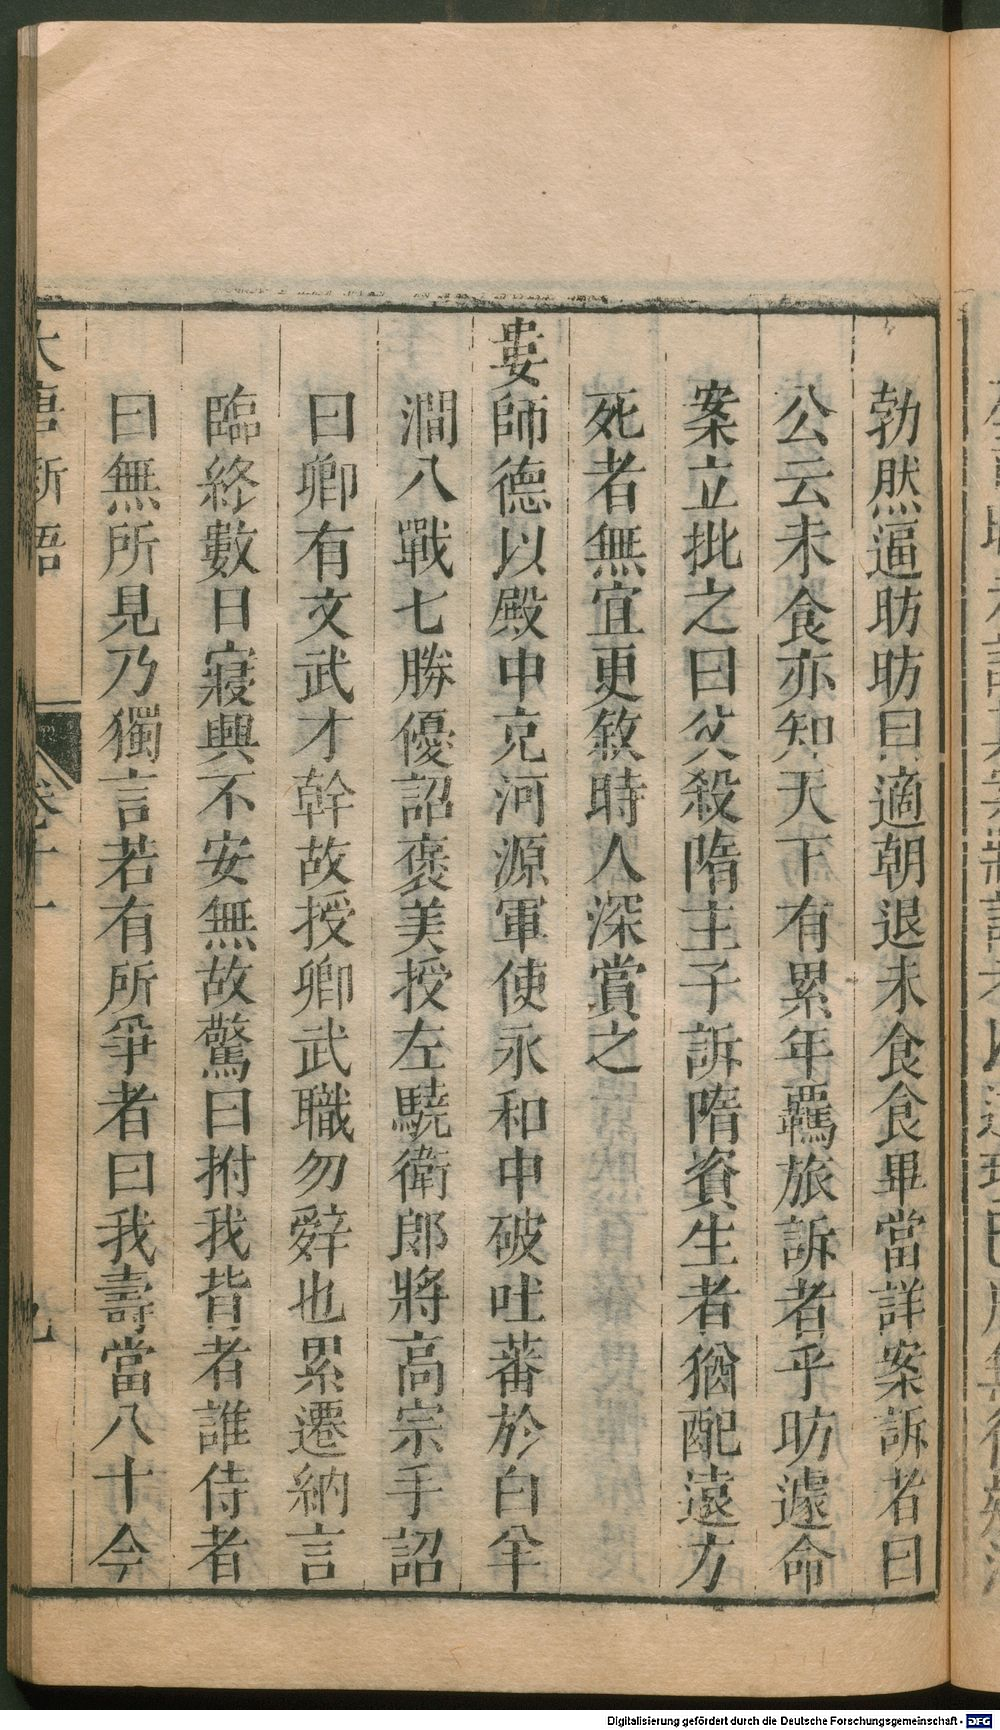 勃然逼昉昉曰適朝退未食食畢當詳案訴者曰
公云未食亦知天下有累年羈旅訴者乎昉遽命
案立批之曰父殺隋主子訴隋資生者猶配遠方
死者無宜更敘時人深賞之
婁師德以殿中充河源軍使永和中破吐蕃於白羊
澗八戰七勝優詔褒美授左驍衛郎將高宗手詔
曰卿有文武才幹故授卿武職勿辭也累遷納言
臨終數日寢興不安無故驚曰拊我背者誰侍者
曰無所見乃獨言若有所爭者曰我壽當八十今
大唐新語
卷十一
九
Digitalisierung gefördert durch die Deutsche Forschungsgemeinschaft - DFG